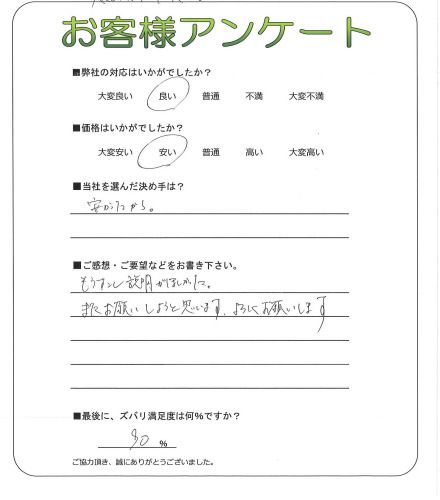 お客様アンケート
■弊社の対応はいかがでしたか？
大変良い 良い 普通 不満 大変不満
■価格はいかがでしたか？
大変安い 安い 普通 高い 大変高い
■当社を選んだ決め手は？
安かったから。
■ご感想・ご要望などをお書き下さい。
もう少し説明がほしかった。
またお願いしようと思います。よろしくお願いします
■最後に、ズバリ満足度は何％ですか？
％
ご協力頂き、誠にありがとうございました。